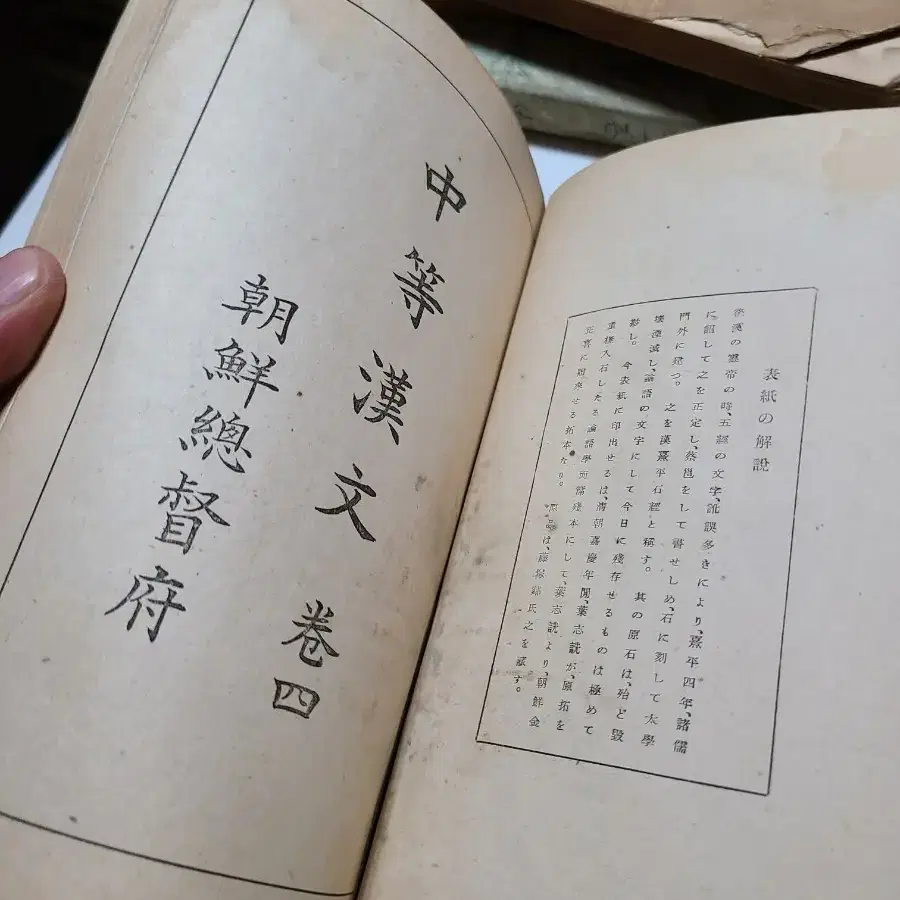 中等漢文 卷四
朝鮮總督府
表紙の解說
後漢の靈帝の時、五經の文字、訛誤多きにより、熹平四年、諸儒
に詔して之を正定し、蔡邕をして書せしめ、石に刻して太學
門外に建つ。之を漢熹平石經と稱す。其の原石は、殆ど毀
壞湮滅し、論語の文字にして今日に殘存せるものは極めて
尠し。今表紙に印出せるは、淸朝嘉慶年間、葉志詵が、原拓を
重橅入石したる論語學而篇殘本にして、葉志詵より、朝鮮金
正喜に贈來せる拓本なり。原品は、藤塚鄰氏之を藏す。